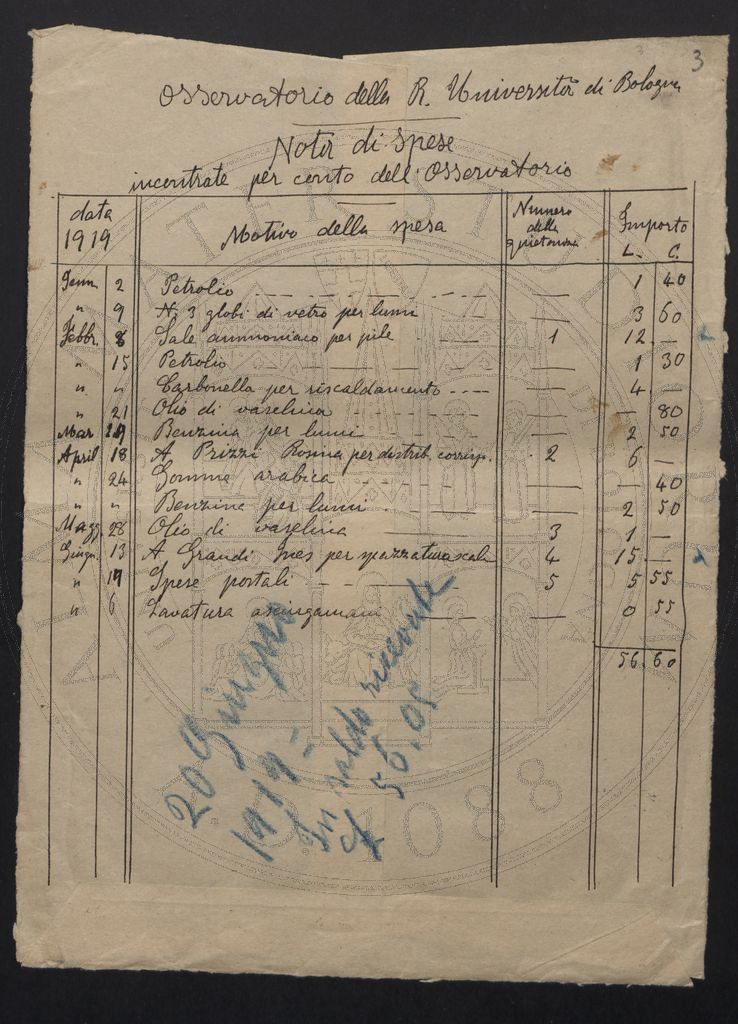 3
Osservatorio della R. Università di Bologna
Nota di spese
incontrate per conto dell'Osservatorio
data 1919 Motivo della spesa Numero della quietanza Importo L. C.
Genn. 2 Petrolio — 1 40
" 9 N. 3 globi di vetro per lumi — 3 60
Febbr. 8 Sale ammoniaco per pile 1 12 —
" 15 Petrolio — 1 30
" " Carbonella per riscaldamento — 4 —
" 21 Olio di vaselina — — 80
Mar 19 Benzina per lumi — 2 50
April 18 A Prizzi Roma per distrib. corrisp. 2 6 —
" 24 Gomma arabica — — 40
" " Benzina per lumi — 2 50
Magg. 28 Olio di vaselina 3 1 —
Giugn. 13 A Grandi Ines per spazzatura scale 4 15 —
" 19 Spese postali 5 5 55
" 6 Lavatura asciugamani — 0 55
56.60
20 Giugno
1919 –
In saldo ricevute
£ 56.05
ALMA MATER STUDIORUM
A.D. 1088